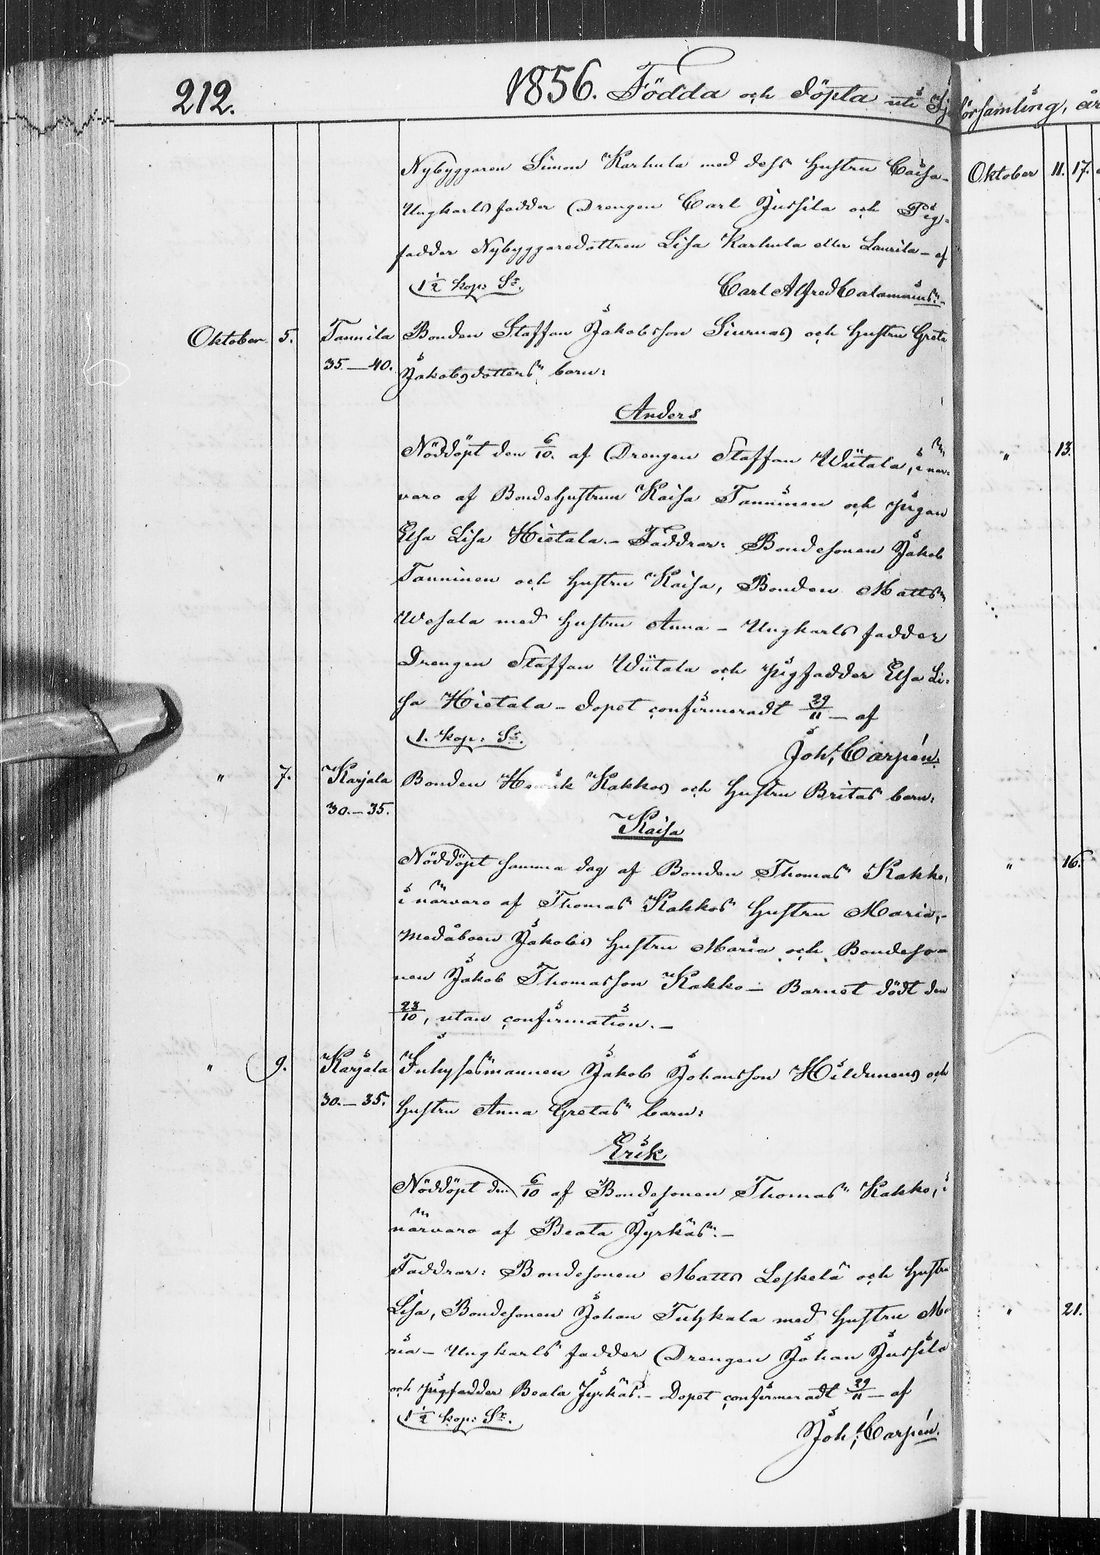 212. 1856. Födda och döpta uti
församling, år
Nybyggaren Simon Karhula med dess hustru Caisa-
Ungkarls fadder Drengen Carl Jussila och Pig-
fadder Nybyggaredottren Lisa Karhula eller Laurila - af
1½ kop: Sr. Carl Alfred Calamnius.
Oktober 5. Tannila Bonden Staffan Jakobsson Siurnas och hustru Greta
35.—40. Jakobsdotters barn:
Anders
Nöddöpt den 6/10. af Drengen Staffan Wiitala, i när-
varo af Bondehustrun Kaisa Tanninen och pigan
Elsa Lisa Hietala.- Faddrar: Bondesonen Jakob
Tanninen och hustru Kaisa, Bonden Matts
Wesala med hustru Anna - Ungkarls fadder
Drengen Staffan Wiitala och pigfadder Elsa Li-
sa Hietala - dopet confirmeradt 29/11 - af
1. kop: Sr. Joh: Carpén.
" 7. Karjala Bonden Henrik Kakkos och hustru Britas barn:
30.—35.
Kaisa
Nöddöpt samma dag af Bonden Thomas Kakko,
i närvaro af Thomas Kakkos hustru Maria,-
medåboen Jakobs hustru Maria och Bondeso-
nen Jakob Thomasson Kakko - Barnet dödt den
23/10, utan confirmation.-
" 9. Karjala Inhysesmannen Jakob Johansson Hildunens och
30.—35. hustru Anna Gretas barn:
Erik
Nöddöpt den 6/10 af Bondesonen Thomas Kakko, i
närvaro af Beata Jyrkäs.-
Faddrar: Bondesonen Matts Leskelä och hustru
Lisa, Bondesonen Johan Tuhkala med hustru Ma-
ria - Ungkarls fadder Drengen Johan Jussila
och pigfadder Beata Jyrkäs.- Dopet confirmeradt 29/11 - af
1½ kop: Sr. Joh: Carpén.
Oktober 11. 17.
" 13.
" 16.
" 21.